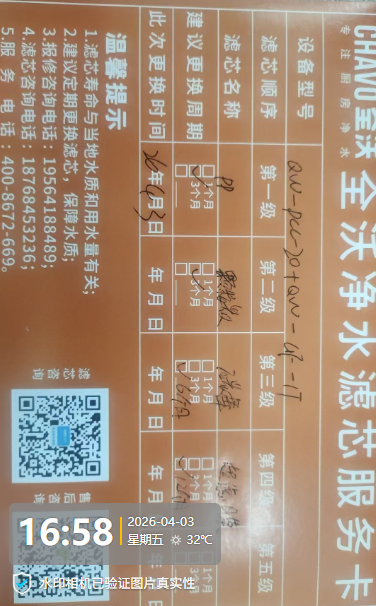 CHAVO 全沃 全沃净水滤芯服务卡
专注厨房净水
设备型号 QW-PCC-30+QW-UF-1T
滤芯顺序 第一级 第二级 第三级 第四级 第五级
滤芯名称 PP 颗粒炭
建议更换周期 1个月 3个月 1个月 3个月 1个月 3个月 6个月 1个月 3个月
此次更换时间 26年4月3日 年 月 日 年 月 日 年 月
温馨提示
1.滤芯寿命与当地水质和用水量有关;
2.建议定期更换滤芯，保障水质;
3.报修咨询电话: 19564188489;
4.滤芯咨询电话: 18768453236;
5.服务电话: 400-8672-669。
滤芯咨询
售后咨询
16:58
2026-04-03
星期五 32℃
水印相机已验证图片真实性